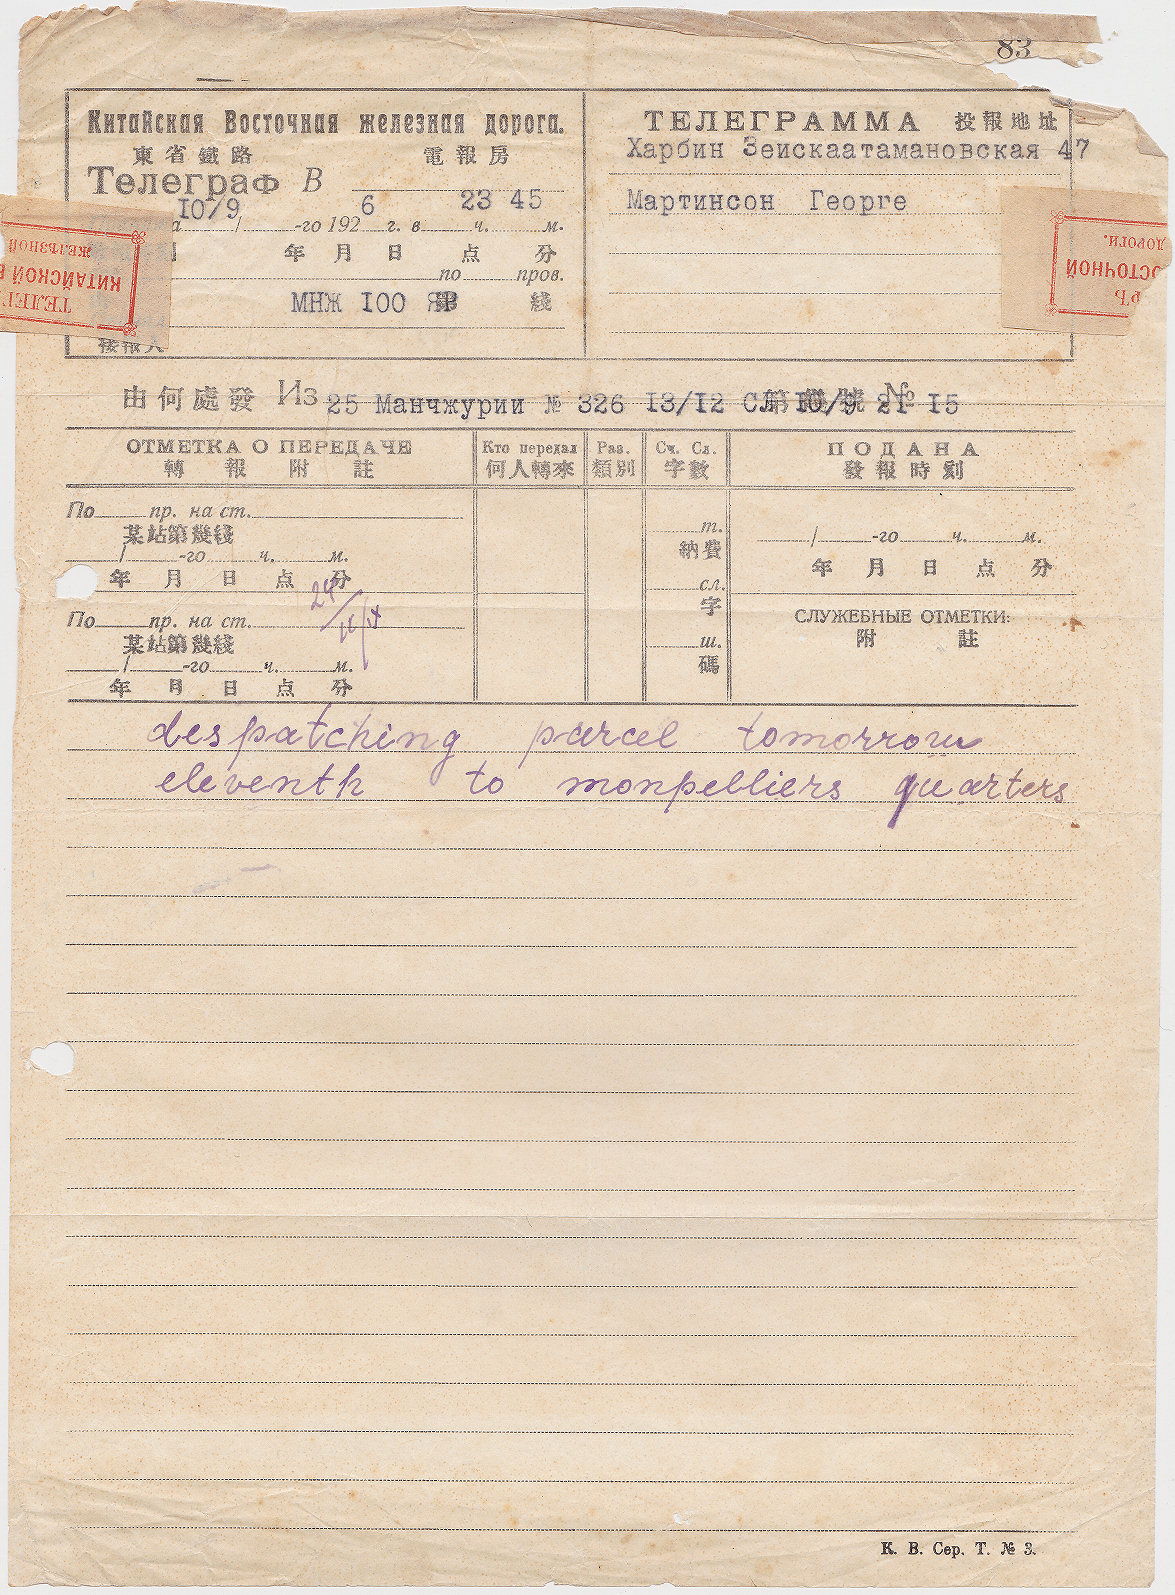 83
Китайская Восточная железная дорога.
東省鐵路 電報房
Телеграф В
10/9 6 23 45
а / -го 192 г. в ч. м.
年 月 日 点 分
по пров.
МНЖ 100 ЯР 綫
接報人
ТЕЛЕГРАММА 投報地址
Харбин Зеискаатамановская 47
Мартинсон Георге
ТЕЛЕГ
КИТАЙСКОЙ В
ЖЕЛѢЗНОЙ
РЪ
ОСТОЧНОЙ
ДОРОГИ.
由何處發 Из 25 Манчжурии № 326 13/12 СЛ 10/9 21 15 第 號 №
ОТМЕТКА О ПЕРЕДАЧЕ Кто передал Раз. Сч. Сл. ПОДАНА
轉報附註 何人轉來 類別 字數 發報時刻
По пр. на ст.
某站第幾綫
/ -го ч. м.
年 月 日 点 分
24/II/4
По пр. на ст.
某站第幾綫
/ -го ч. м.
年 月 日 点 分
т.
納費
сл.
字
ш.
碼
/ -го ч. м.
年 月 日 点 分
СЛУЖЕБНЫЕ ОТМЕТКИ:
附註
despatching parcel tomorrow
eleventh to monpelliers quarters
К. В. Сер. Т. № 3.